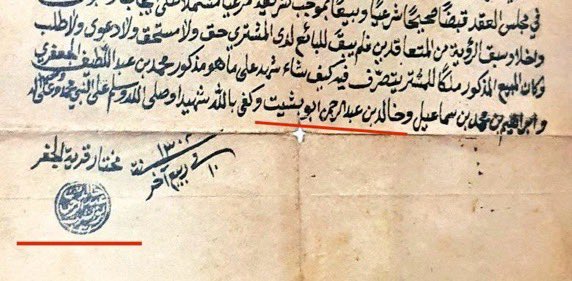 في مجلس العقد قبضًا صحيحًا شرعيًا وبيعًا بموجب شرعيًا
واخلاد وسبق الرؤية من المتعاقدين فلم يبق للبايع لدى المشتري حق ولا مستحق ولا دعوى ولا طلب
وكان المبيع المذكور ملكًا للمشتر يتصرف فيه كيف شاء شهد على ما هو مذكور محمد بن عبد اللطيف الجعفري
وابراهيم بن محمد بن سماعيل وخالد بن عبد الرحمن ابو بشيت وكفى بالله شهيدا وصلى الله وسلم على النبي محمد وعلى اله
في ١٠ ربيع آخر سنة ١٣٠٢
مختار قرية الجفر